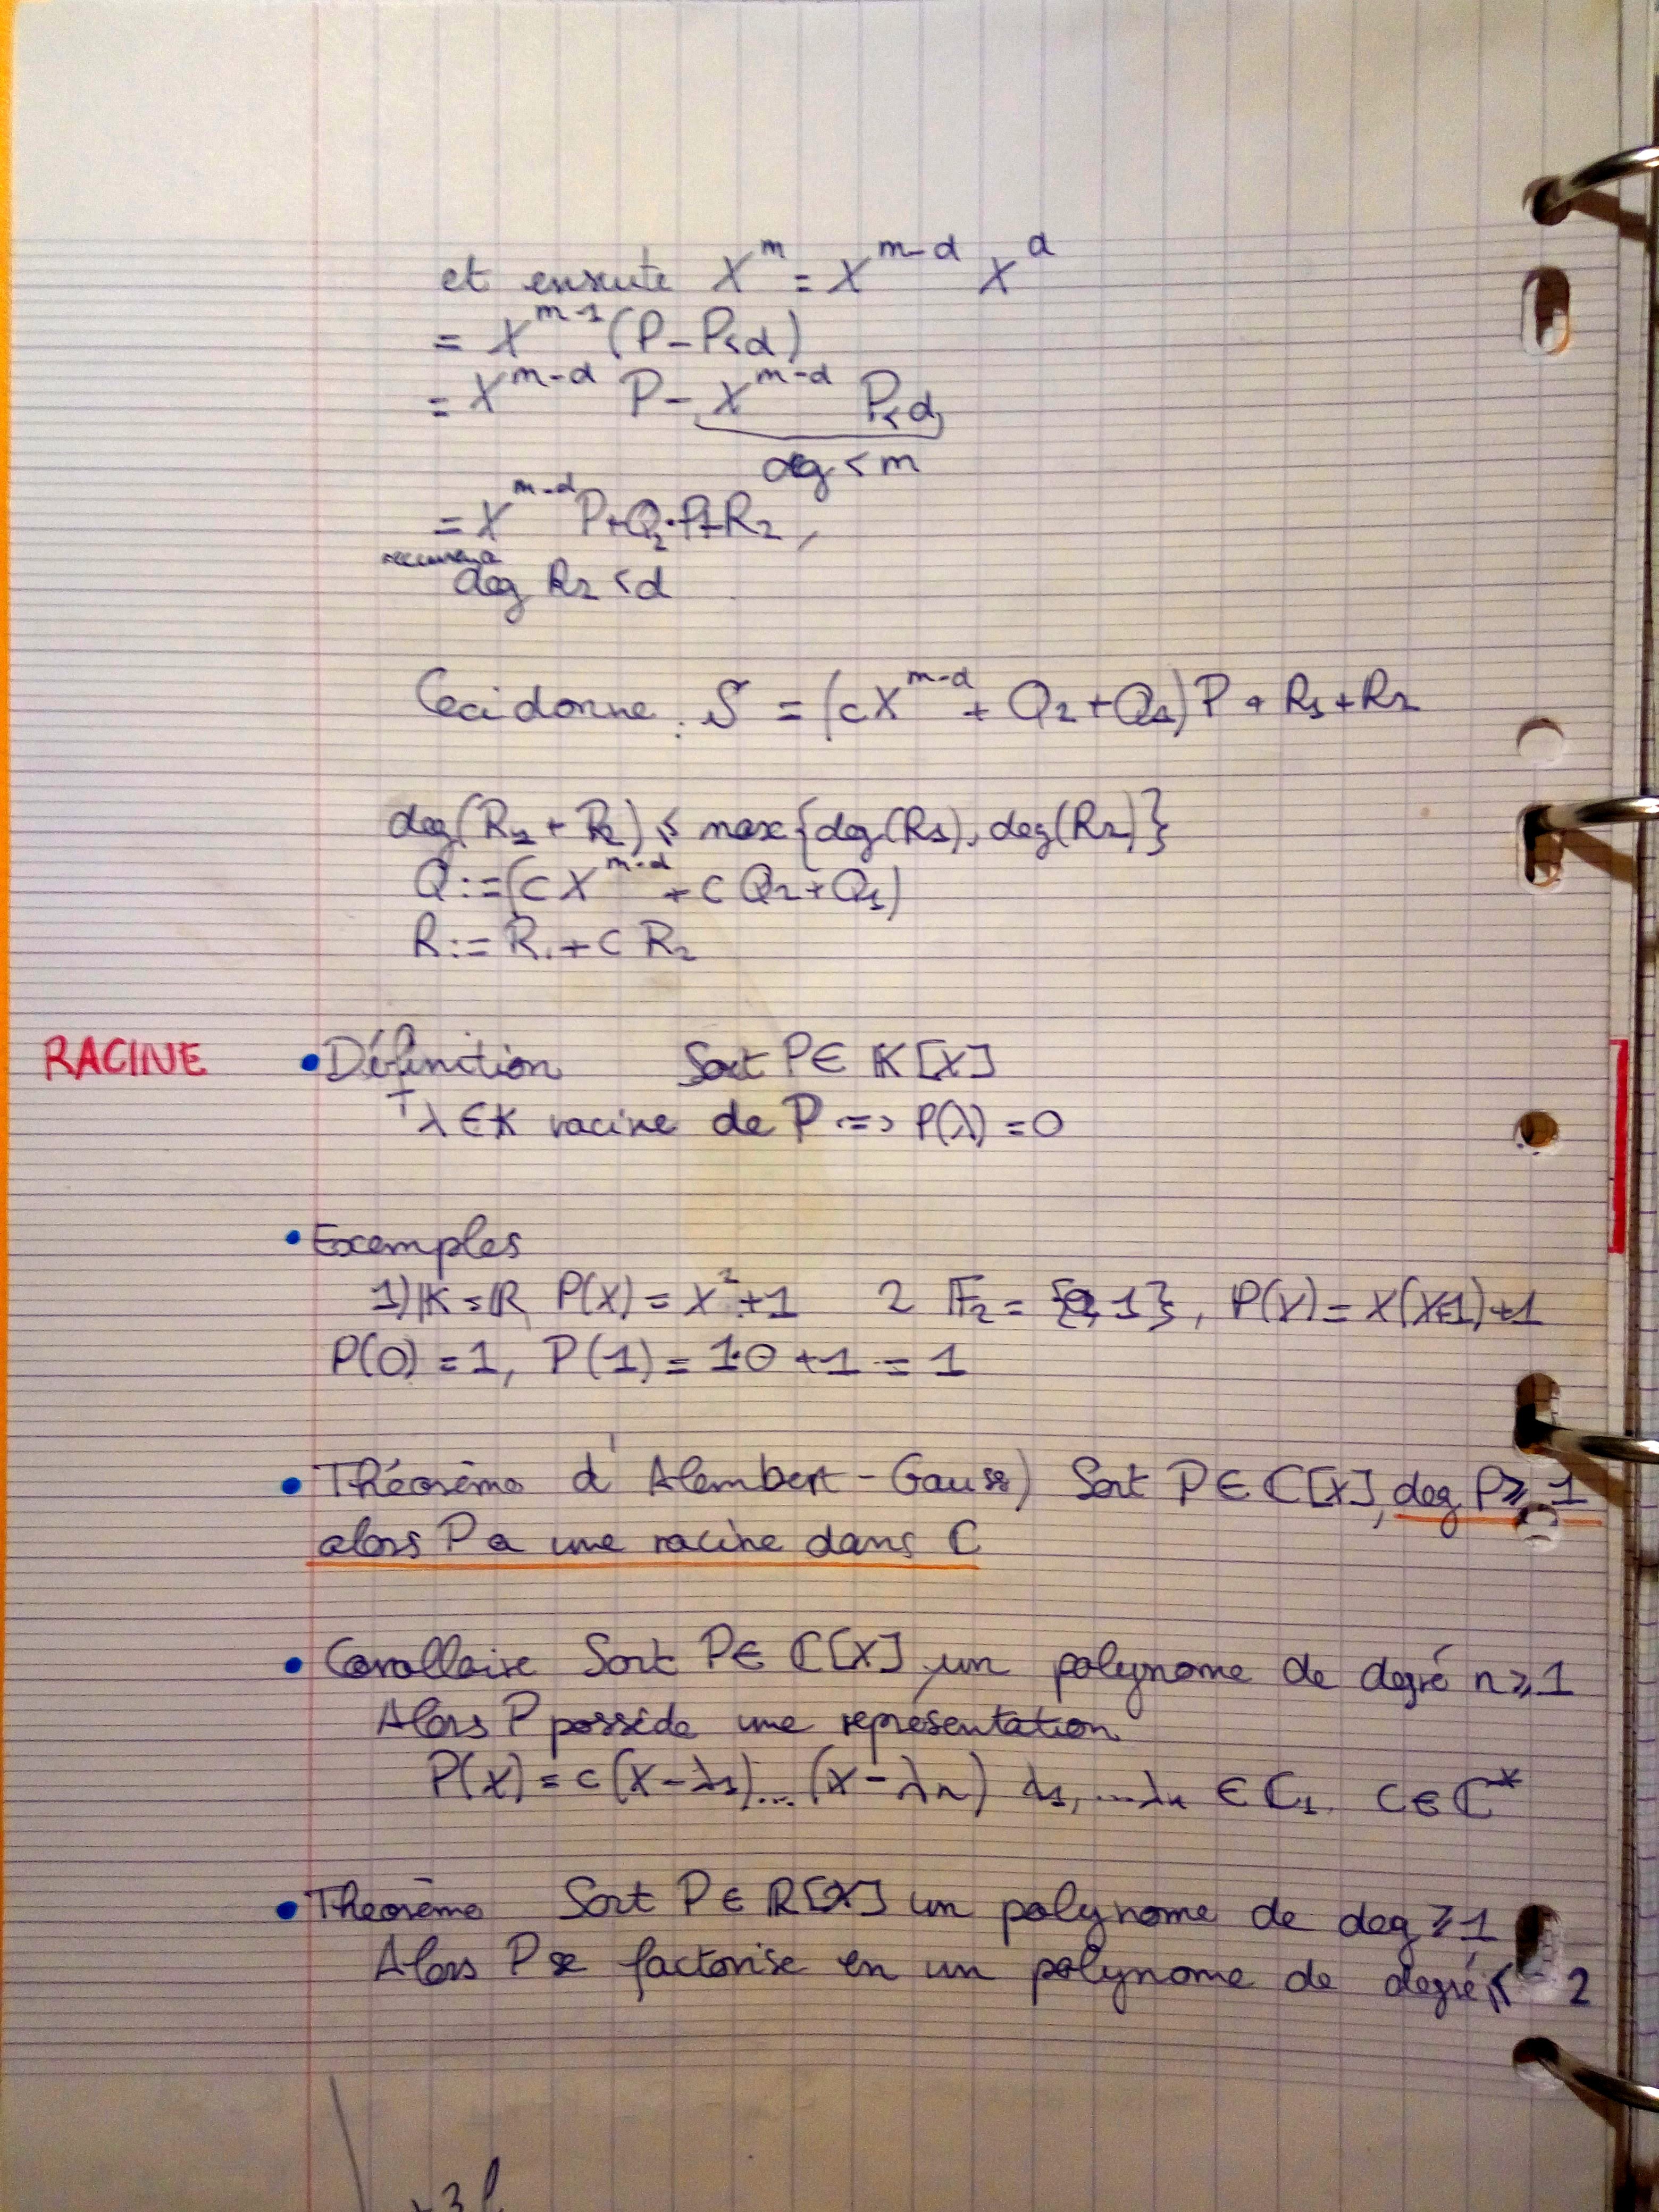 et ensuite X^m = X^{m-d} X^d
= X^{m-1} (P - P<d)
= X^{m-d} P - X^{m-d} P<d
deg < m
= X^{m-d} P + Q₂·P + R₂,
deg R₂ < d
Ceci donne : S = (cX^{m-d} + Q₂ + Q₁) P + R₁ + R₂
deg(R₁ + R₂) ≤ max{deg(R₁), deg(R₂)}
Q := (cX^{m-d} + c Q₂ + Q₁)
R := R₁ + c R₂
RACINE • Définition Soit P ∈ K[X]
λ ∈ K racine de P => P(λ) = 0
• Exemples
1) K = R P(X) = X² + 1 2 F₂ = {0,1}, P(X) = X(X-1)+1
P(0) = 1, P(1) = 1·0 + 1 = 1
• Théorème d'Alembert-Gauss) Soit P ∈ C[X], deg P ≥ 1
alors P a une racine dans C
• Corollaire Soit P ∈ C[X] un polynome de degré n ≥ 1
Alors P possède une représentation
P(X) = c(X-λ₁)...(X-λn) λ₁,...λn ∈ C₁ c ∈ C*
• Theorème Soit P ∈ R[X] un polynome de deg ≥ 1
Alors P se factorise en un polynome de degré ≤ 2